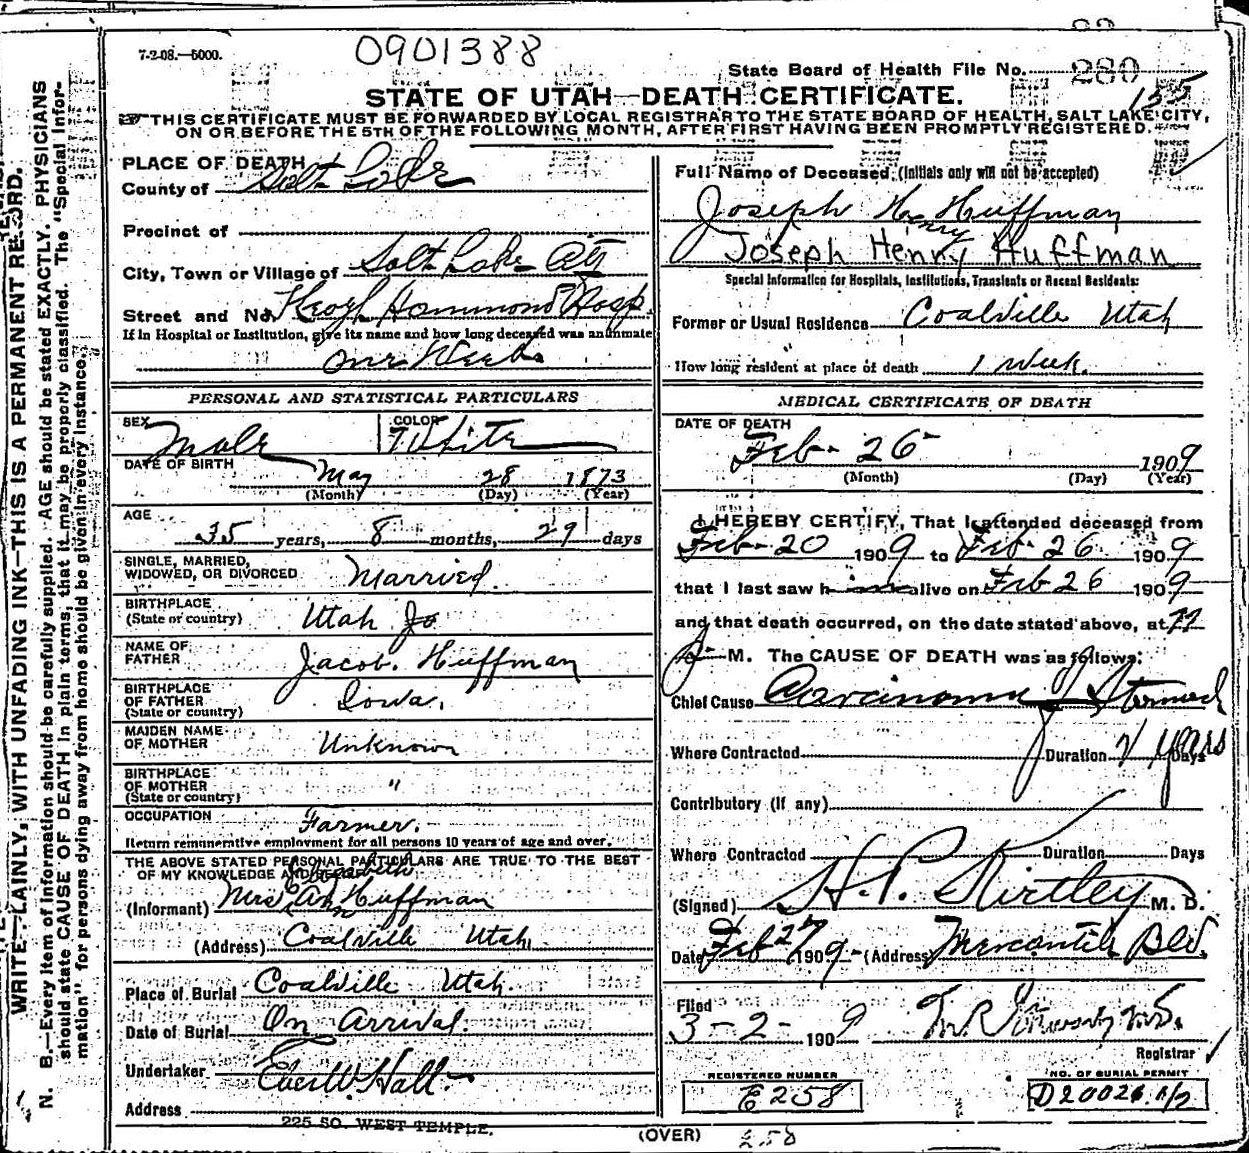 7-2-08.—5000.
0901388
State Board of Health File No. 280
STATE OF UTAH—DEATH CERTIFICATE.
THIS CERTIFICATE MUST BE FORWARDED BY LOCAL REGISTRAR TO THE STATE BOARD OF HEALTH, SALT LAKE CITY,
ON OR BEFORE THE 5TH OF THE FOLLOWING MONTH, AFTER FIRST HAVING BEEN PROMPTLY REGISTERED.
WRITE PLAINLY, WITH UNFADING INK—THIS IS A PERMANENT RECORD.
N. B.—Every item of information should be carefully supplied. AGE should be stated EXACTLY. PHYSICIANS
should state CAUSE OF DEATH in plain terms, that it may be properly classified. The "Special Infor-
mation" for persons dying away from home should be given in every instance.
PLACE OF DEATH
County of Salt Lake
Precinct of
City, Town or Village of Salt Lake City
Street and No. Keogh Hammond Hosp.
If in Hospital or Institution, give its name and how long deceased was an inmate
One Week
PERSONAL AND STATISTICAL PARTICULARS
SEX Male COLOR White
DATE OF BIRTH May 28 1873
(Month) (Day) (Year)
AGE
35 years, 8 months, 29 days
SINGLE, MARRIED,
WIDOWED, OR DIVORCED Married.
BIRTHPLACE
(State or country) Utah
NAME OF
FATHER Jacob. Huffman
BIRTHPLACE
OF FATHER
(State or country) Iowa.
MAIDEN NAME
OF MOTHER Unknown
BIRTHPLACE
OF MOTHER
(State or country) "
OCCUPATION Farmer.
Return remunerative employment for all persons 10 years of age and over.
THE ABOVE STATED PERSONAL PARTICULARS ARE TRUE TO THE BEST
OF MY KNOWLEDGE AND BELIEF
Elizabeth
(Informant) Mrs Ann Huffman
(Address) Coalville Utah
Place of Burial Coalville Utah.
Date of Burial On Arrival.
Undertaker Eber W. Hall
Address
225 SO. WEST TEMPLE.
Full Name of Deceased (Initials only will not be accepted)
Joseph H. Huffman
Henry
Joseph Henry Huffman
Special Information for Hospitals, Institutions, Transients or Recent Residents:
Former or Usual Residence Coalville Utah
How long resident at place of death 1 Week.
MEDICAL CERTIFICATE OF DEATH
DATE OF DEATH
Feb- 26 1909
(Month) (Day) (Year)
I HEREBY CERTIFY, That I attended deceased from
Feb- 20 1909 to Feb- 26 1909
that I last saw him alive on Feb 26 1909
and that death occurred, on the date stated above, at 11
P M. The CAUSE OF DEATH was as follows:
Chief Cause Carcinoma of Stomach
Where Contracted Duration 2 years Days
Contributory (if any)
Where Contracted Duration Days
(Signed) H. P. Kirtley M. D.
Date Feb 27 1909 (Address) Mercantile Bld.
Filed
3-2- 1909
Registrar
REGISTERED NUMBER
E258
NO. OF BURIAL PERMIT
D20026
(OVER)
258